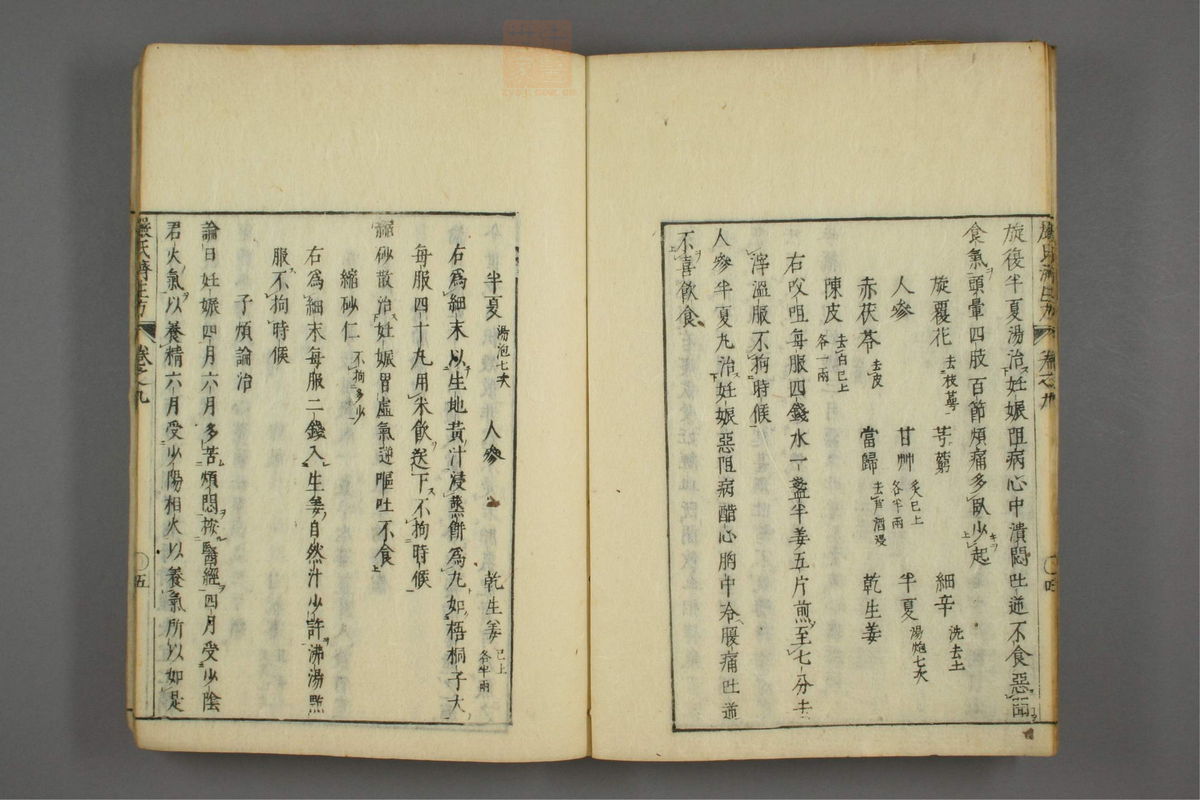 旋復半夏湯治妊娠阻病心中潰悶吐逆不食惡聞
食氣頭暈四肢百節煩痛多臥少起
旋覆花去枝萼 芎藭 細辛洗去土
人參 甘艸炙已上各半兩 半夏湯炮七次
赤茯苓去皮 當歸去芦酒浸 乾生姜
陳皮去白已上各一兩
右㕮咀每服四錢水一盞半姜五片煎至七分去
滓溫服不拘時候
人參半夏丸治妊娠惡阻病醋心胸中冷腹痛吐逆
不喜飲食
半夏湯泡七次 人參 乾生姜已上各半兩
右爲細末以生地黃汁浸蒸餅爲丸如梧桐子大
每服四十丸用米飲送下不拘時候
縮砂散治妊娠胃虛氣逆嘔吐不食
縮砂仁不拘多少
右爲細末每服二錢入生姜自然汁少許沸湯點
服不拘時候
子煩論治
論曰妊娠四月六月多苦煩悶按醫經四月受少陰
君火氣以養精六月受少陽相火以養氣所以如是
嚴氏濟生方 卷之九 五